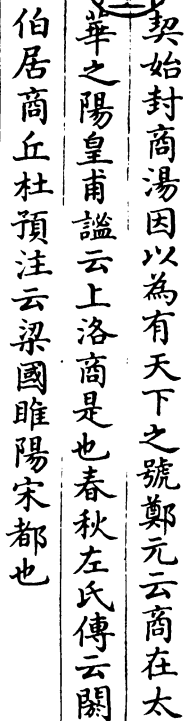 契始封商湯因以為有天下之號鄭元云商在太
華之陽皇甫謐云上洛商是也春秋左氏傳云閼
伯居商丘杜預注云梁國睢陽宋都也